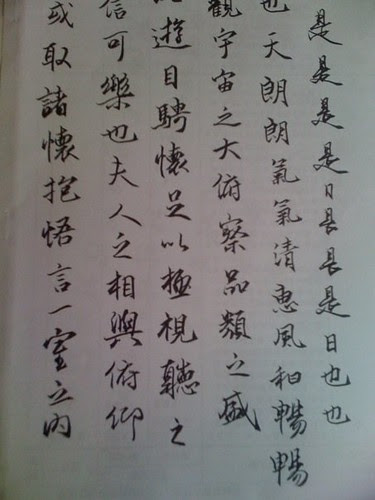 是是是是日是日也也
也天朗朗氣氣清惠風和暢暢
觀宇宙之大俯察品類之盛
遊目騁懷足以極視聽之
信可樂也夫人之相與俯仰
或取諸懷抱悟言一室之內